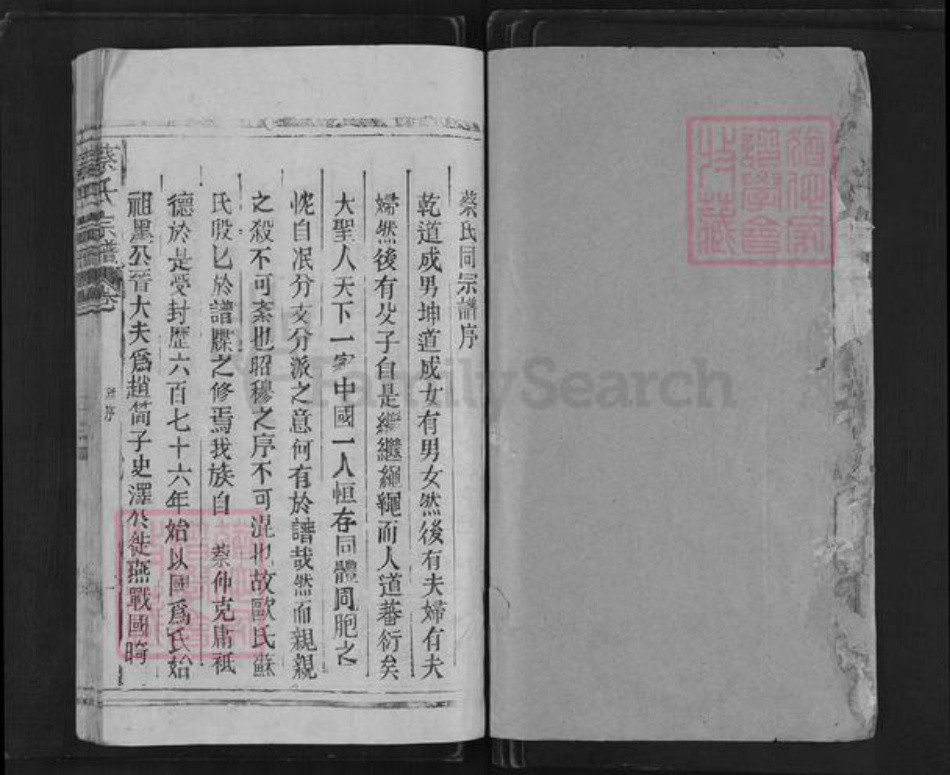 蔡氏同宗譜序
乾道成男坤道成女有男女然後有夫婦有夫
婦然後有父子自是繼繼繩繩而人道蕃衍矣
大聖人天下一家中國一人恒存同體周胞之
恍自泯分支分派之意何有於譜哉然而親親
之殺不可紊也昭穆之序不可混也故歐氏蘇
氏殷匕於譜牒之修焉我族自 蔡仲克庸祗
德於是受封歷六百七十六年始以國爲氏始
祖墨公晉大夫爲趙简子史澤公徙燕戰國時
蔡氏宗譜
序
FamilySearch
猶他家
譜學會
特藏